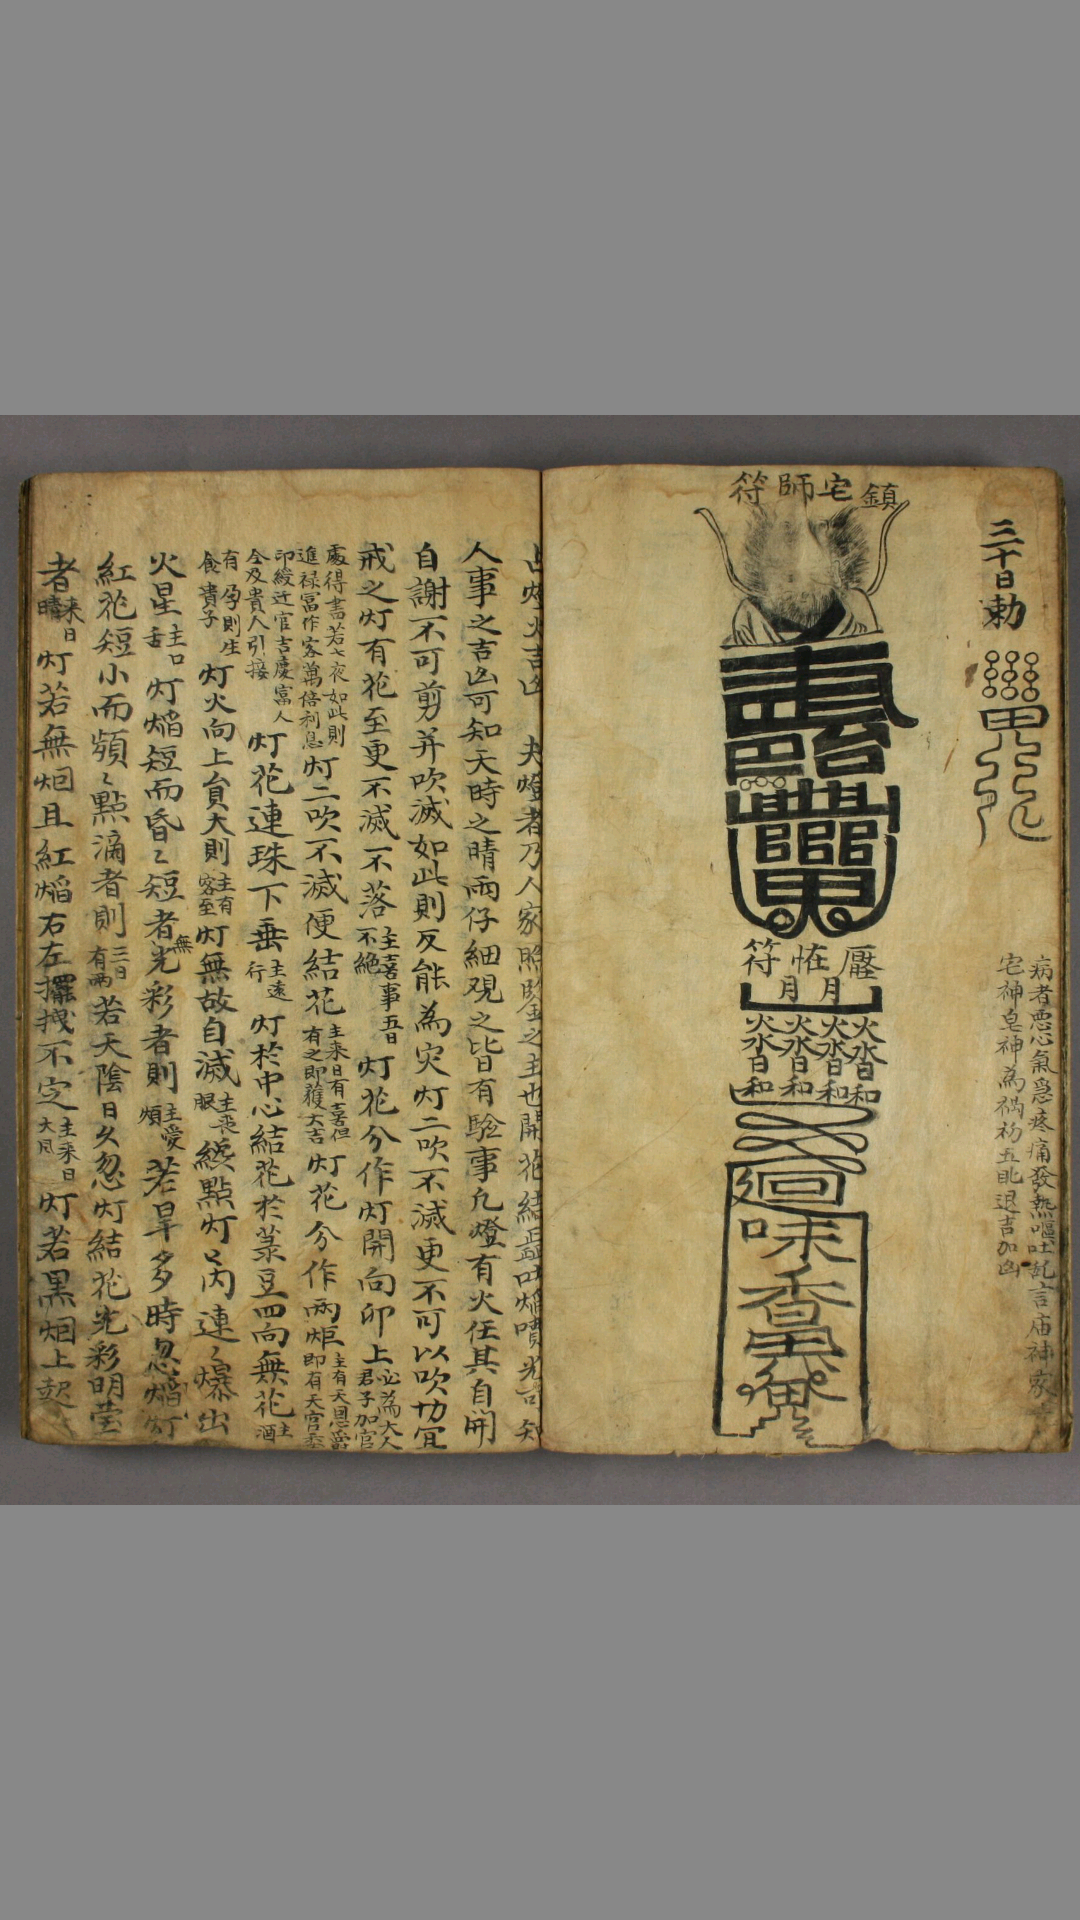 三十日勅
病者惡心氣急疼痛發熱嘔吐乱言庙神家
宅神皂神為禍礽五眂退吉加凶
鎮宅師符
壓恠符
月月
火水日和 火水日和 火水日和 火水日和
廻
味
香
占燈火吉凶 夫燈者乃人家照鑒之主也開花結蕋吐焰噴光可知
人事之吉凶可知天時之晴雨仔細观之皆有驗事凢燈有火任其自開
自謝不可剪并吹滅如此則反能為灾灯二吹不滅更不可以吹切宜
戒之灯有花至更不滅不落主喜事五日不絕灯花分作灯開向卯上必為大人君子加官
處得書若七夜如此則進禄冨作客萬倍利息灯二吹不滅便結花主来日有喜但有之即獲大吉灯花分作兩炬主有天恩爵即有天宫
印綬近官吉慶富人全及貴人引接灯花連珠下垂主遠行灯於中心結花於菉豆四向無花主酒
食有孕則生貴子灯火向上貟大則主有客至灯無故自滅主丧服纔點灯芮連〻爆出
火星主口舌灯焰短而昏〻短者無光彩者則主愛煩若旱多時忽焰灯
紅花短小而頻〻點滴者則三日有雨若天陰日久忽灯結花光彩明莹
者来日晴灯若無烟且紅焰右左擺拽不定主来日大風灯若黑烟上起